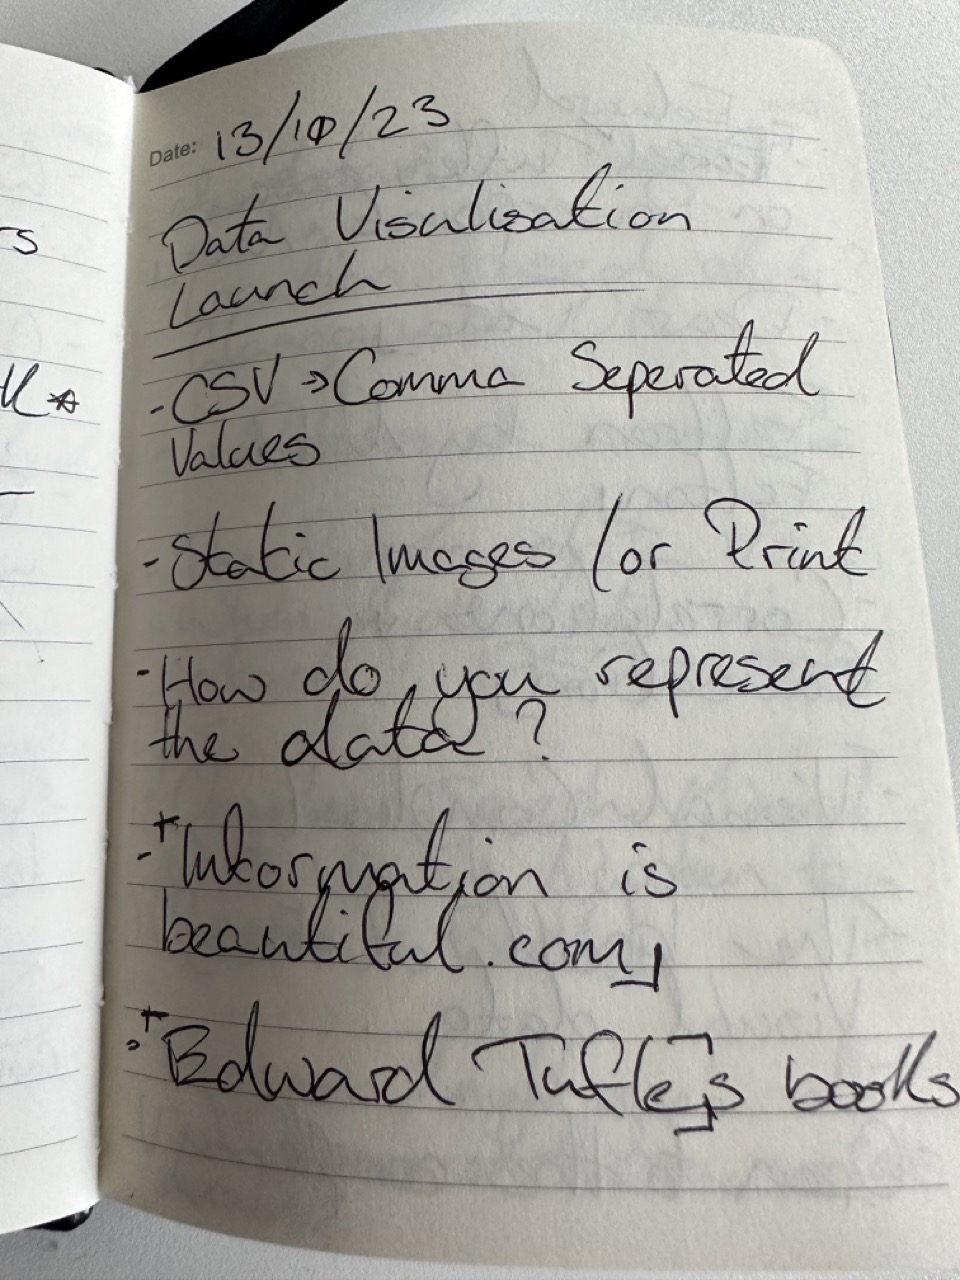 rs
Date: 13/10/23
Data Visulisation
Launch
- CSV → Comma Seperated
Values
- Static Images / or Print
- How do you represent
the data?
- + Information is
beautiful.com
- + Edward Tufte's books